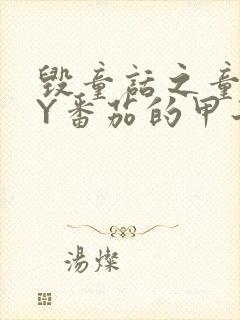 毁童话之童
Y番茄的甲
湯燦